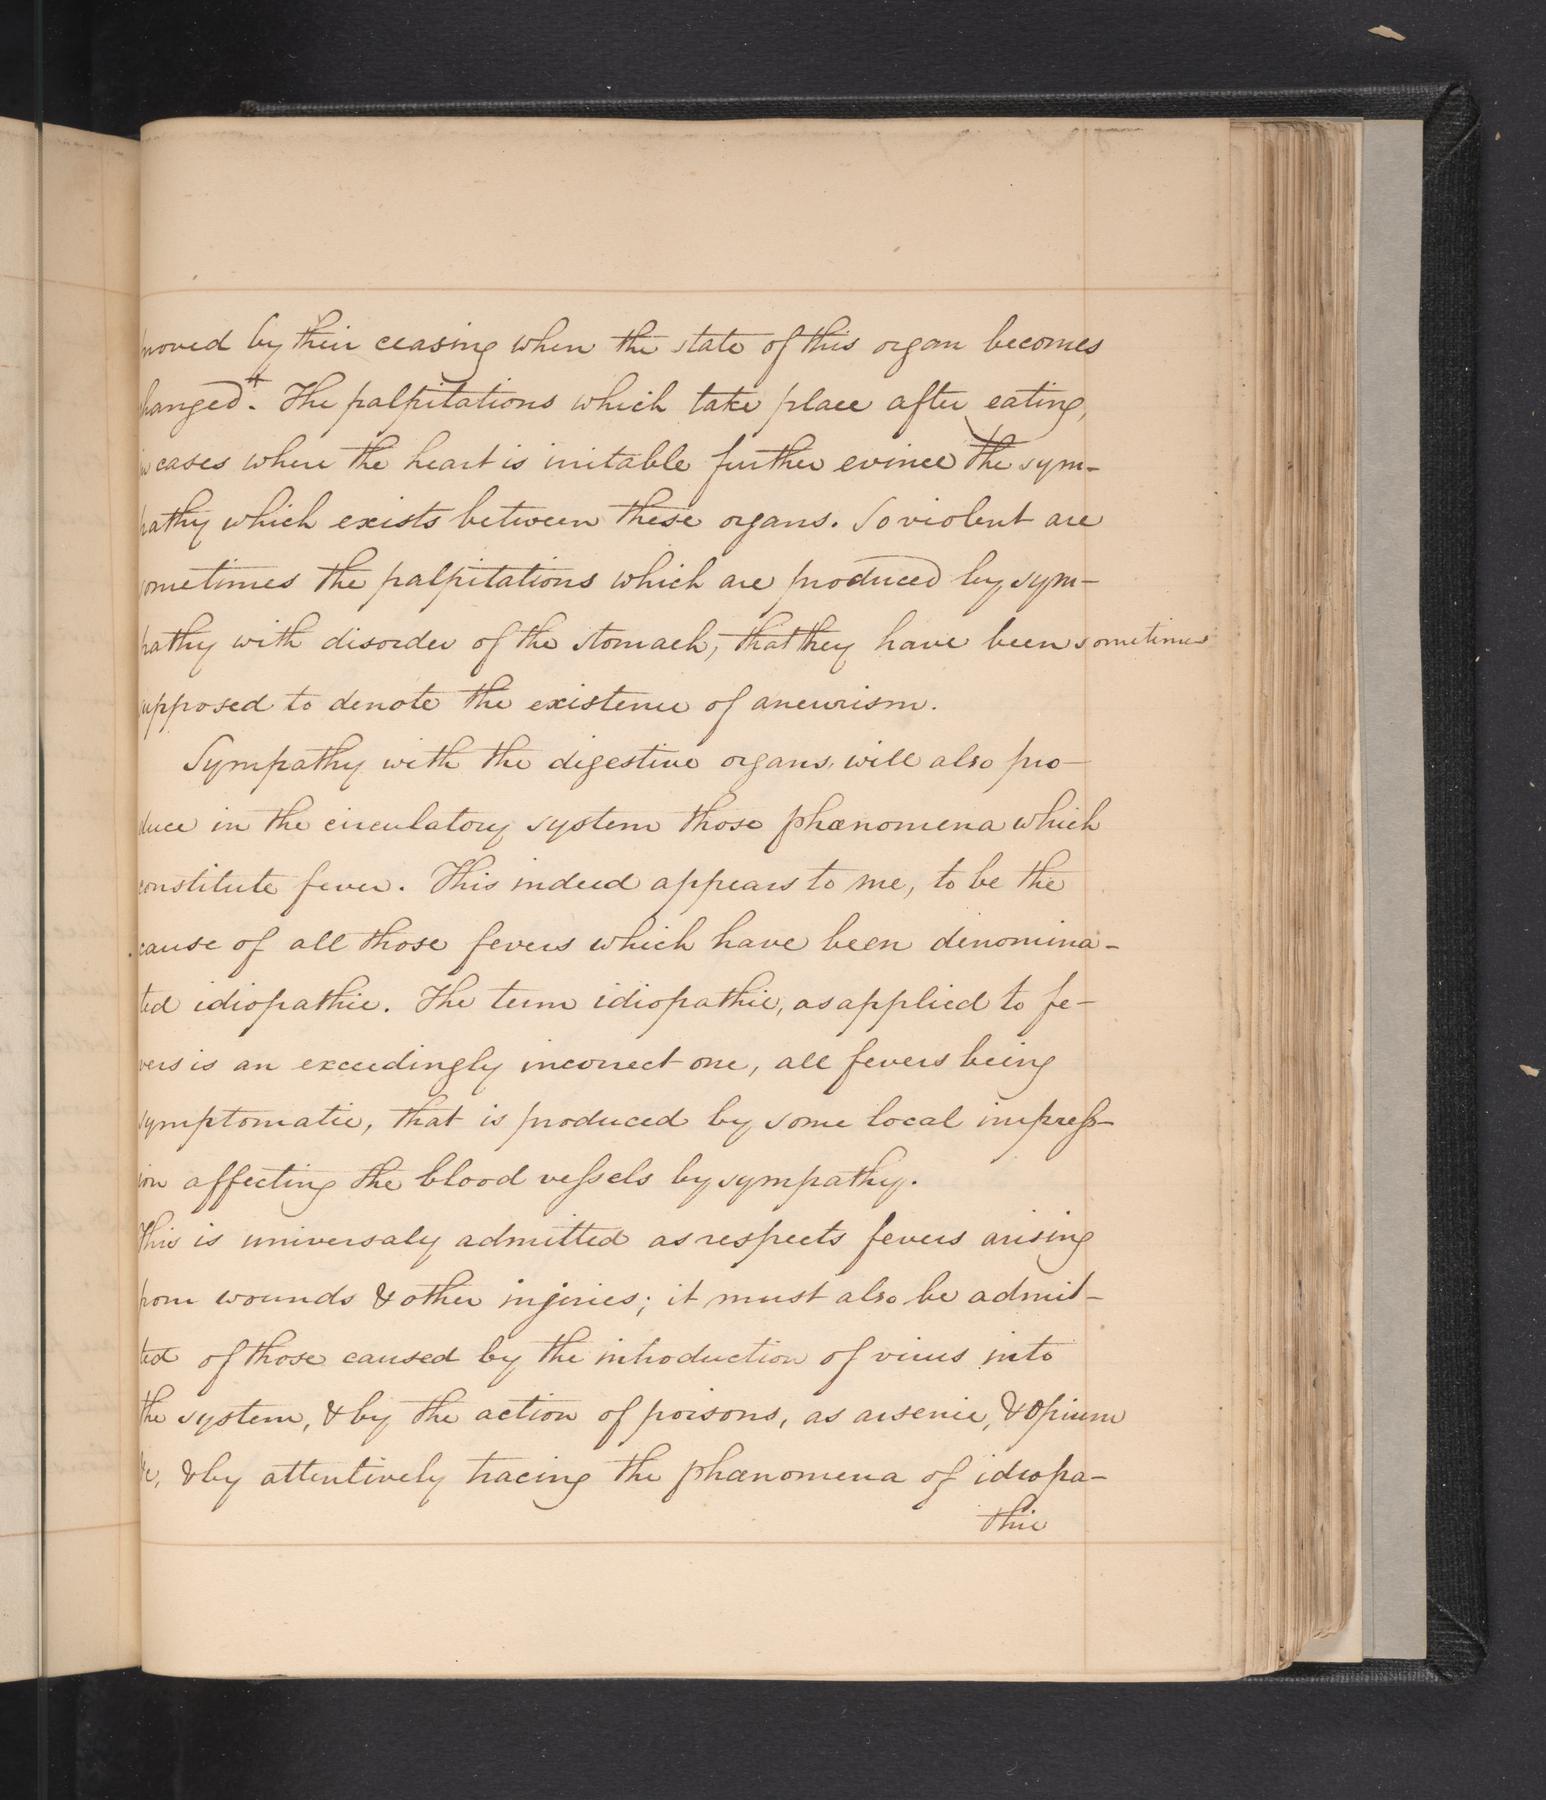 proved by their ceasing when the state of this organ becomes
changed*. The palpitations which take place after eating,
in cases where the heart is irritable further evince the sym-
pathy which exists between these organs. So violent are
sometimes the palpitations which are produced by sym-
pathy with disorder of the stomach, that they have been sometimes
supposed to denote the existence of aneurism.
Sympathy with the digestive organs, will also pro-
duce in the circulatory system those phænomena which
constitute fever. This indeed appears to me, to be the
cause of all those fevers which have been denomina-
ted idiopathic. The term idiopathic, as applied to fe-
vers is an exceedingly incorrect one, all fevers being
symptomatic, that is produced by some local impress-
ion affecting the blood vessels by sympathy.
This is universaly admitted as respects fevers arising
from wounds & other injiries; it must also be admit-
ted of those caused by the introduction of virus into
the system, & by the action of poisons, as arsenic, & opium
&c, & by attentively tracing the phænomena of idiopa-
thic